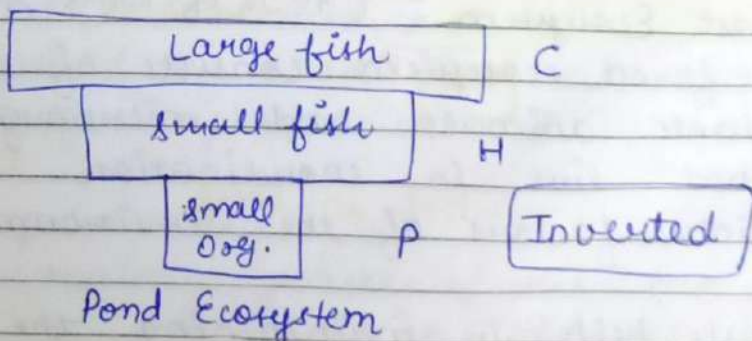 Large fish C
small fish H
small
Org. P Inverted
Pond Ecosystem